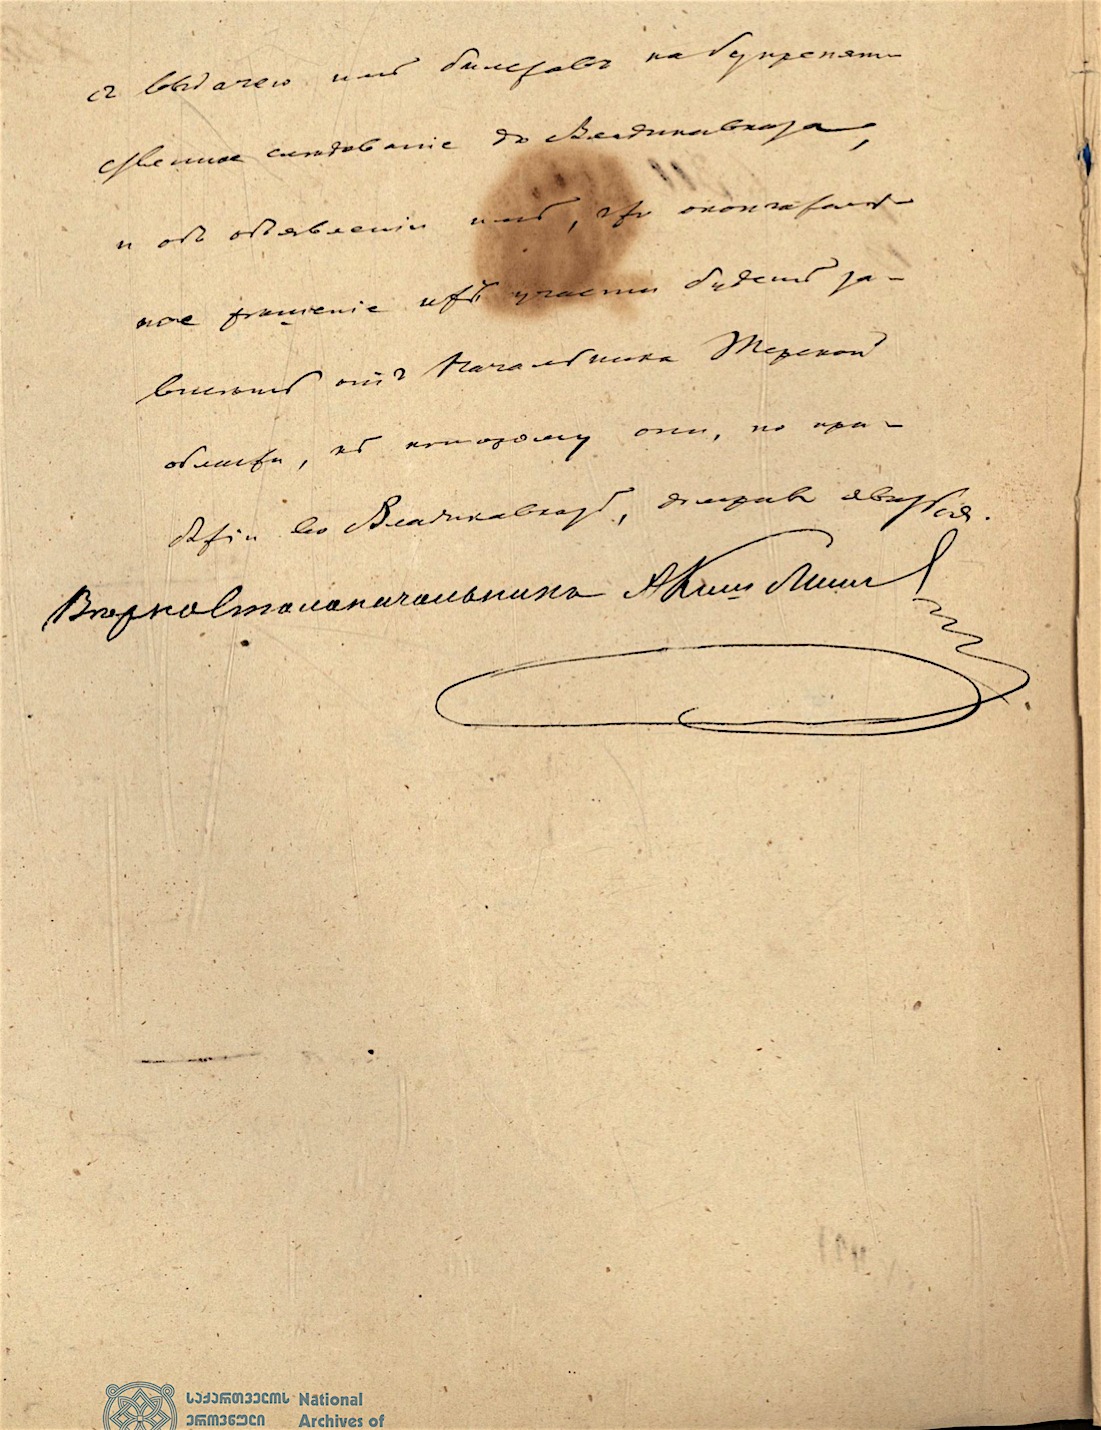 съ выдачею имъ билетовъ на безпрепят-
ственное слѣдованіе до Владикавказа,
и объ объявленіи имъ, что окончатель-
ное рѣшеніе ихъ участи будетъ за-
висѣть отъ Начальника Терской
области, къ которому они, по при-
бытіи во Владикавказъ, должны явиться.
Вѣрно Столоначальника
საქართველოს National
ეროვნული Archives of